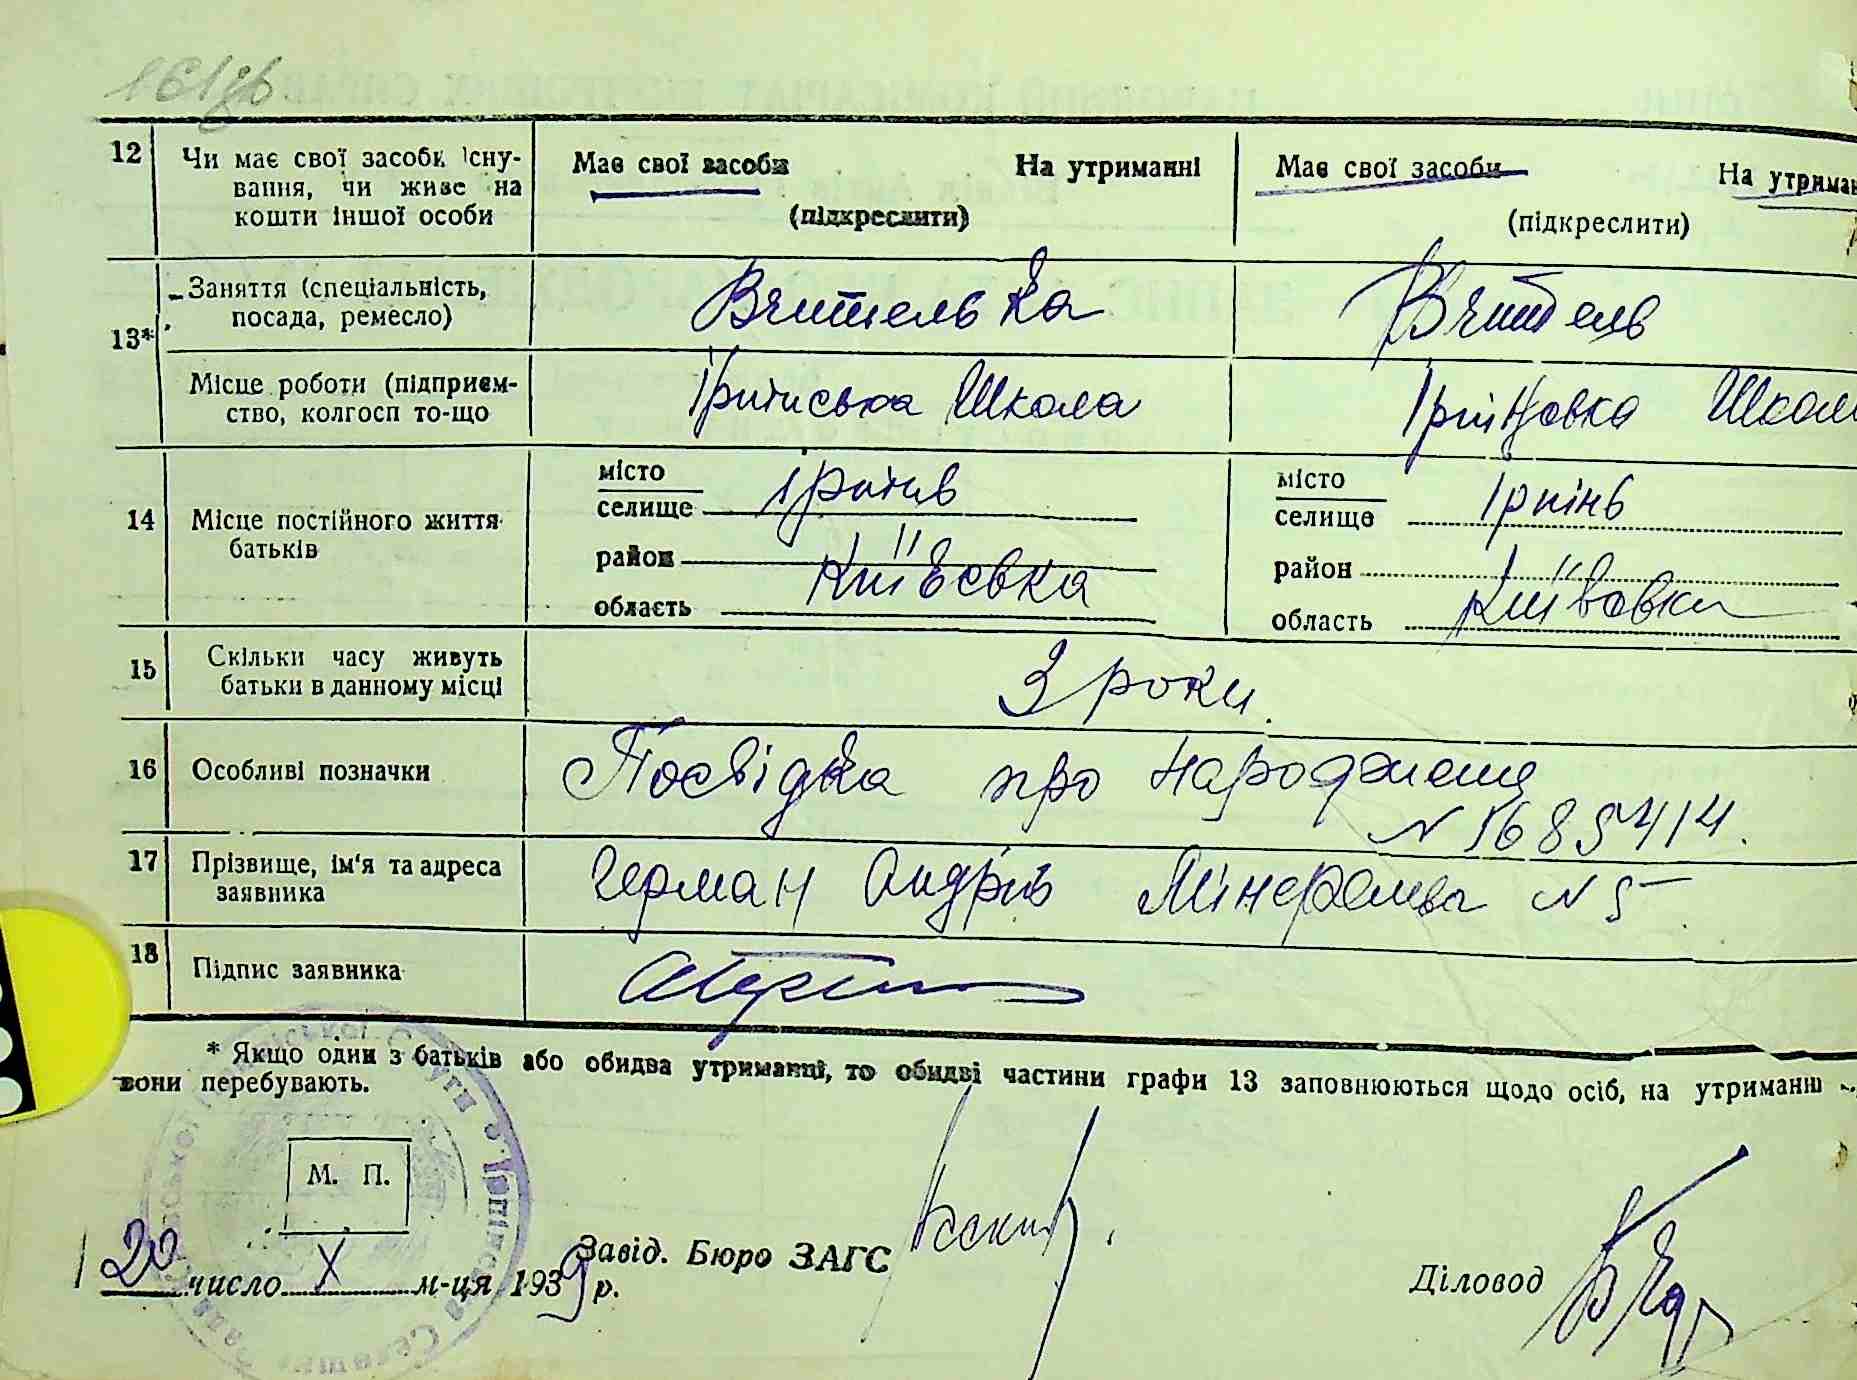 12 Чи має свої засоби існу-
вання, чи живе на
кошти іншої особи
Має свої засоби На утриманні
(підкреслити)
Має свої засоби На утриман
(підкреслити)
13*
Заняття (спеціальність,
посада, ремесло)
Вчителька
Вчитель
Місце роботи (підприєм-
ство, колгосп то-що
Ірпінська Школа
Школа
14 Місце постійного життя
батьків
місто
селище Ірпінь
район
область Київська
місто
селище Ірпінь
район
область Київська
15 Скільки часу живуть
батьки в данному місці
3 роки.
16 Особливі позначки
Посвідка про народження
N 1685414.
17 Прізвище, ім'я та адреса
заявника
Герман Андрій Мінеральна N 5
18 Підпис заявника
* Якщо один з батьків або обидва утриманці, то обидві частини графи 13 заповнюються щодо осіб, на утриманні
вони перебувають.
М. П.
20 число X м-ця 1939 р.
Завід. Бюро ЗАГС
Діловод